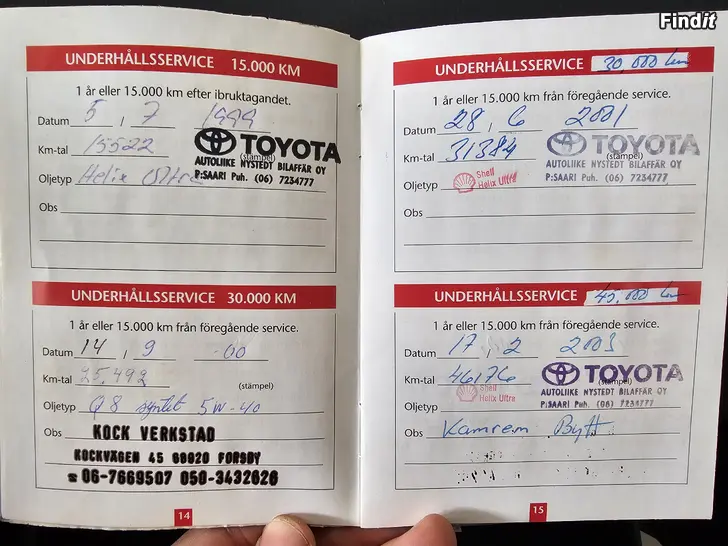 Findit
UNDERHÅLLSSERVICE 15.000 KM
1 år eller 15.000 km efter ibruktagandet.
Datum 5, 7 1999
Km-tal 15522
(stämpel)
TOYOTA
AUTOLIIKE NYSTEDT BILAFFÄR OY
P:SAARI Puh. (06) 7234777
Oljetyp Helix Ultra
Obs
UNDERHÅLLSSERVICE 30.000 KM
1 år eller 15.000 km från föregående service.
Datum 14, 9 00
Km-tal 25.492
(stämpel)
Oljetyp Q8 syntet 5W-40
Obs KOCK VERKSTAD
KOCKVÄGEN 45 68820 FORSBY
06-7669507 050-3432626
14
UNDERHÅLLSSERVICE 30,000 km
1 år eller 15.000 km från föregående service.
Datum 28, 6 2001
Km-tal 31384
(stämpel)
TOYOTA
AUTOLIIKE NYSTEDT BILAFFÄR OY
P:SAARI Puh. (06) 7234777
Oljetyp Shell
Helix Ultra
Obs
UNDERHÅLLSSERVICE 45,000 km
1 år eller 15.000 km från föregående service.
Datum 17, 2 2003
Km-tal 46176
(stämpel)
TOYOTA
AUTOLIIKE NYSTEDT BILAFFÄR OY
P:SAARI Puh. (06) 7234777
Oljetyp Shell
Helix Ultra
Obs Kamrem Bytt
15